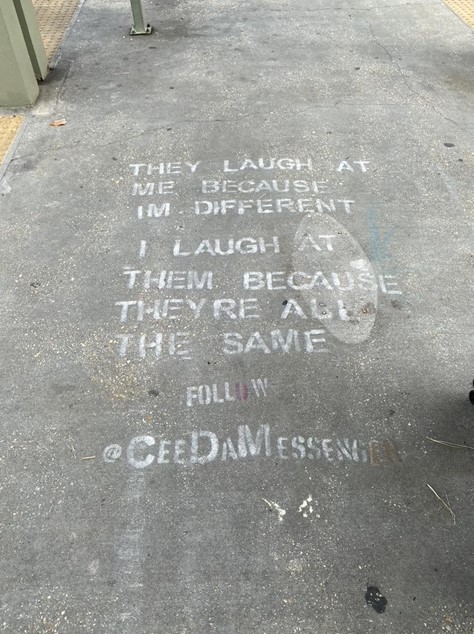 THEY LAUGH AT
ME BECAUSE
IM DIFFERENT
I LAUGH AT
THEM BECAUSE
THEYRE ALL
THE SAME
FOLLOW
@CEEDAMESSENGER